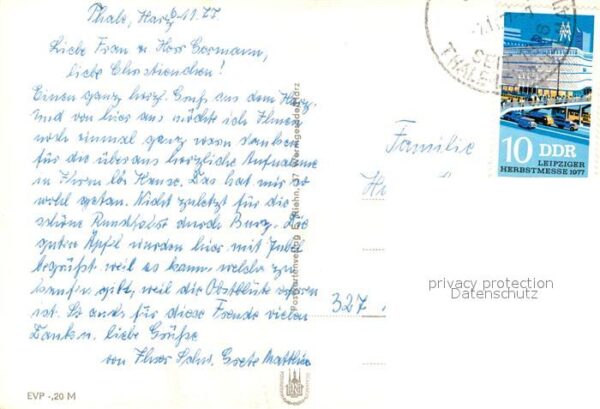 Thale, Harz 6.11.77
Liebe Frau u Herr Germann,
liebe Christinchen!
Einen ganz herzl. Gruß aus dem Harz
und von hier aus möchte ich Ihnen
noch einmal ganz warm danken
für die überaus herzliche Aufnahme
in Ihrem lb Hause. Das hat mir so
wohl getan. Nicht zuletzt für die
schöne Rundfahrt durch Burg. Die
guten Äpfel wurden hier mit Jubel
begrüßt weil es kaum welche zu
kaufen gibt, weil die Obstblüte erfroren
ist. So auch für diese Freude vielen
Dank u. liebe Grüße
von Ihrer Schw. Grete
EVP -,20 M
Postkartenverlag 37 Wernigerode/Harz
THALE
10 DDR
LEIPZIGER
HERBSTMESSE 1977
Familie
327
privacy protection
Datenschutz